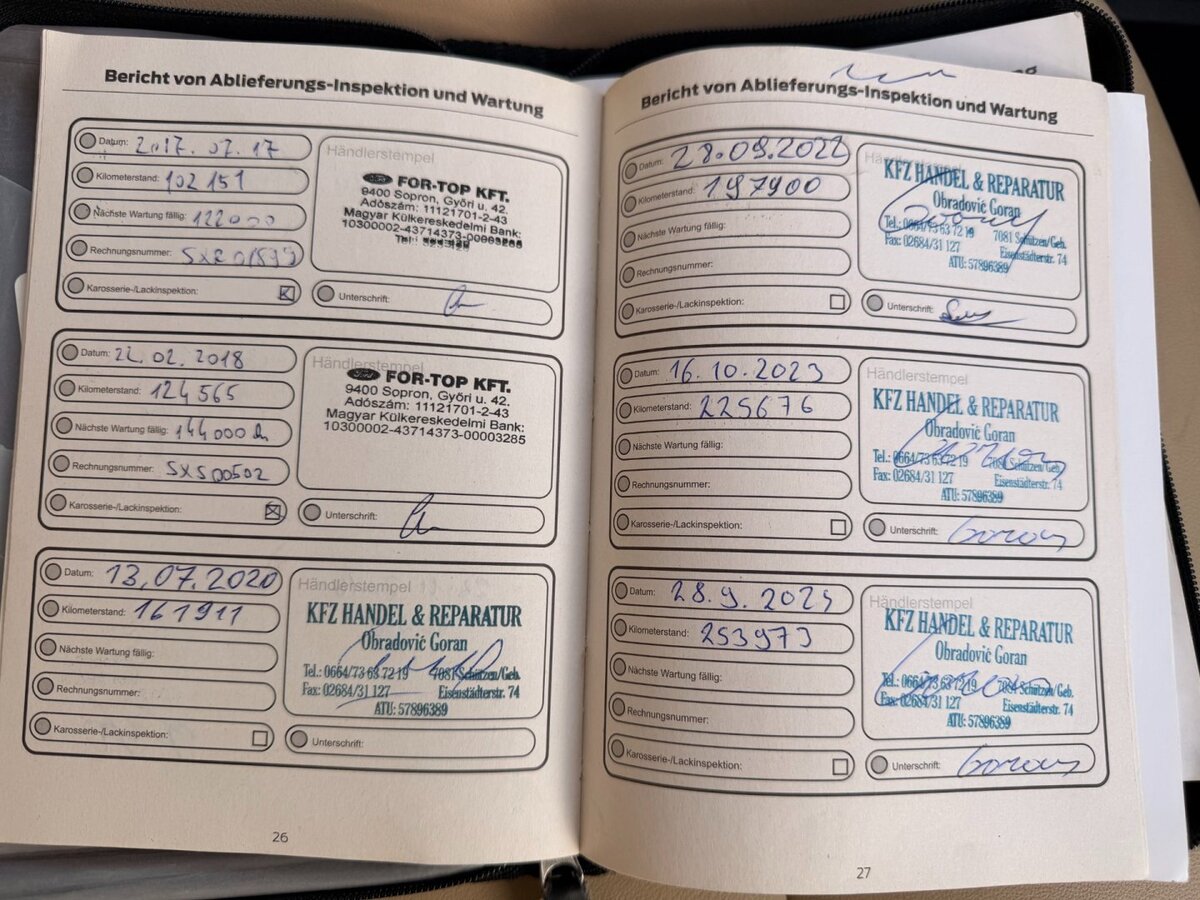 Bericht von Ablieferungs-Inspektion und Wartung
Datum: 2017.07.17
Kilometerstand: 102 151
Nächste Wartung fällig: 122000
Rechnungsnummer:
Karosserie-/Lackinspektion:
Händlerstempel
Ford FOR-TOP KFT.
9400 Sopron, Győri u. 42.
Adószám: 11121701-2-43
Magyar Külkereskedelmi Bank:
10300002-43714373-00003285
Tel:
Unterschrift:
Datum: 22.02.2018
Kilometerstand: 124565
Nächste Wartung fällig: 144000
Rechnungsnummer: SXS00502
Karosserie-/Lackinspektion:
Händlerstempel
Ford FOR-TOP KFT.
9400 Sopron, Győri u. 42.
Adószám: 11121701-2-43
Magyar Külkereskedelmi Bank:
10300002-43714373-00003285
Unterschrift:
Datum: 13.07.2020
Kilometerstand: 161911
Nächste Wartung fällig:
Rechnungsnummer:
Karosserie-/Lackinspektion:
Händlerstempel
KFZ HANDEL & REPARATUR
Obradović Goran
Tel.: 0664/73 63 72 19 7081 Schützen/Geb.
Fax: 02684/31 127 Eisenstädterstr. 74
ATU: 57896389
Unterschrift:
26
Bericht von Ablieferungs-Inspektion und Wartung
Datum: 28.09.2022
Kilometerstand: 197900
Nächste Wartung fällig:
Rechnungsnummer:
Karosserie-/Lackinspektion:
Händlerstempel
KFZ HANDEL & REPARATUR
Obradović Goran
Tel.: 0664/73 63 72 19 7081 Schützen/Geb.
Fax: 02684/31 127 Eisenstädterstr. 74
ATU: 57896389
Unterschrift:
Datum: 16.10.2023
Kilometerstand: 225676
Nächste Wartung fällig:
Rechnungsnummer:
Karosserie-/Lackinspektion:
Händlerstempel
KFZ HANDEL & REPARATUR
Obradović Goran
Tel.: 0664/73 63 72 19 7081 Schützen/Geb.
Fax: 02684/31 127 Eisenstädterstr. 74
ATU: 57896389
Unterschrift:
Datum:
Kilometerstand: 253973
Nächste Wartung fällig:
Rechnungsnummer:
Karosserie-/Lackinspektion:
Händlerstempel
KFZ HANDEL & REPARATUR
Obradović Goran
Tel.: 0664/73 63 72 19 7081 Schützen/Geb.
Fax: 02684/31 127 Eisenstädterstr. 74
ATU: 57896389
Unterschrift:
27